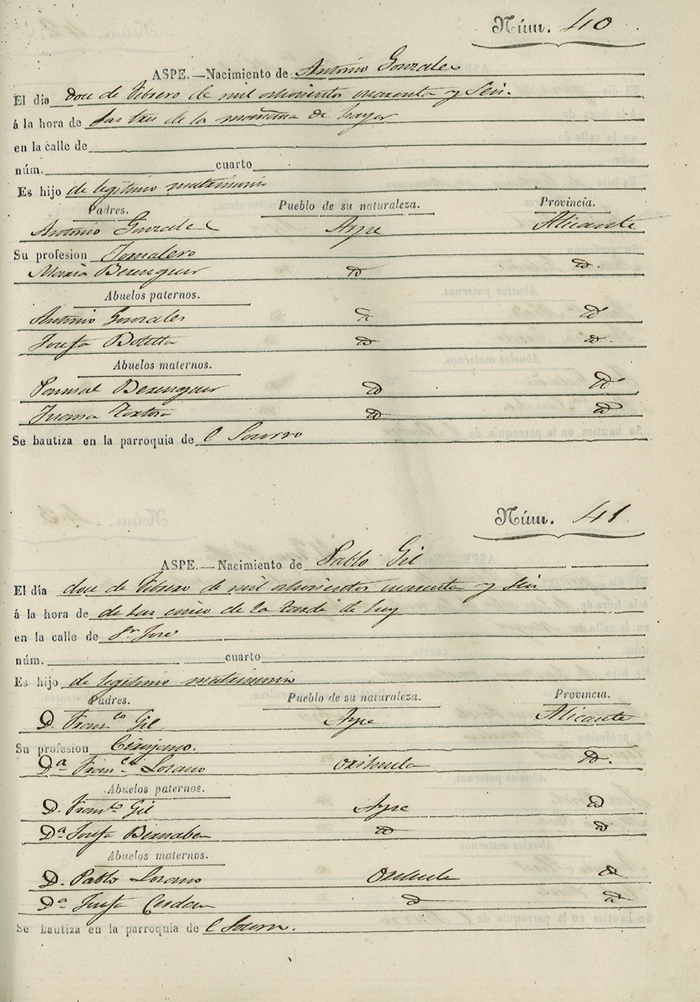 Núm. 40
ASPE.—Nacimiento de Antonio Gonzales
El dia doce de febrero de mil ochocientos cuarenta y seis.
á la hora de las tres de la mañana de hayer
en la calle de
núm. cuarto
Es hijo de legitimo matrimonio
Padres. Pueblo de su naturaleza. Provincia.
Antonio Gonzales Aspe Alicante
Su profesion Jornalero
Maria Berenguer id id.
Abuelos paternos.
Antonio Gonzales id id
Josefa Botella id id.
Abuelos maternos.
Pascual Berenguer id id
Juana id id
Se bautiza en la parroquia de el Socorro
Núm. 41
ASPE.—Nacimiento de Pablo Gil
El día doce de febrero de mil ochocientos cuarenta y seis
á la hora de de las cinco de la tarde de hoy
en la calle de Sn Jose
núm. cuarto
Es hijo de legitimo matrimonio
Padres. Pueblo de su naturaleza. Provincia.
D. Franco Gil Aspe Alicante
Su profesion Cirujano.
Da Franca Lozano Orihuela id.
Abuelos paternos.
D. Franco Gil Aspe id
Da Josefa Bernabeu id id
Abuelos maternos.
D. Pablo Lozano Orihuela id
Da Josefa Cerdan id id
Se bautiza en la parroquia de el Socorro.